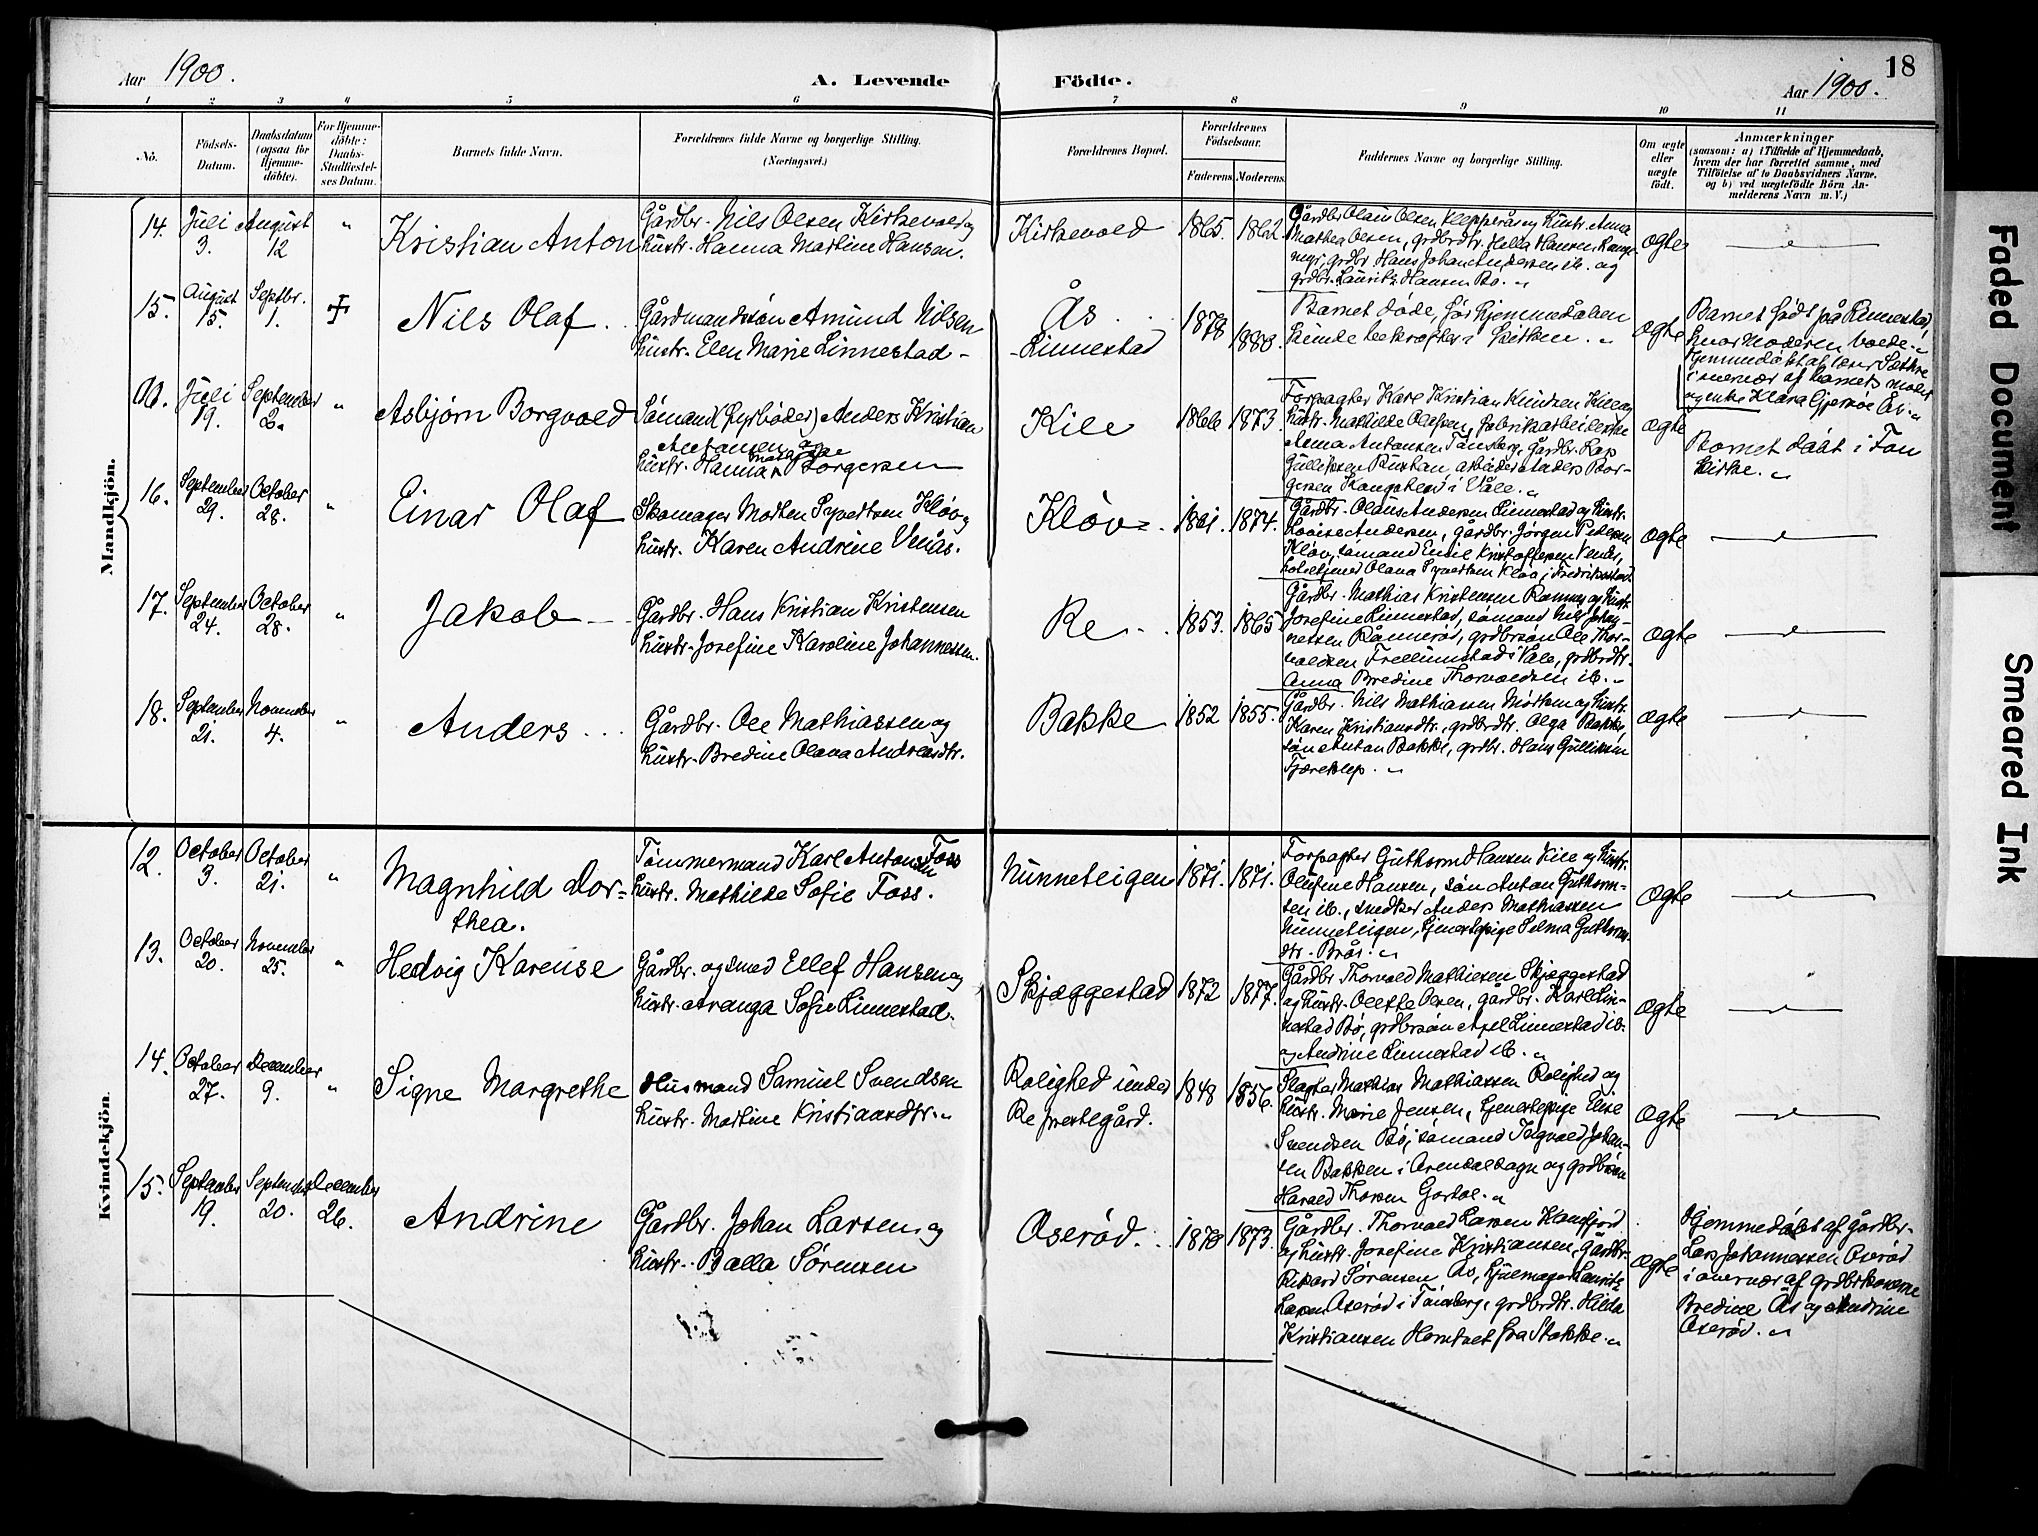 Aar 1900.
A. Levende
Födte.
Aar 1900.
18
1
2
3
4
5
6
7
8
9
10
11
No.
Födsels-
Datum.
Daabsdatum
(ogsaa for
Hjemme-
döbte).
For Hjemme-
döbte:
Daabs-
Stadfæstel-
ses Datum.
Barnets fulde Navn.
Forældrenes fulde Navne og borgerlige Stilling.
(Næringsvei.)
Forældrenes Bopæl.
Forældrenes
Födselsaar.
Faderens
Moderens
Faddernes Navne og borgerlige Stilling.
Om ægte
eller
uægte
födt.
Anmærkninger
(saasom: a) i Tilfælde af Hjemmedaab,
hvem der har forrettet samme, med
Tilföielse af to Daabsvidners Navne.
og b) ved uægtefödte Börn An-
melderens Navn m. V.)
Mandkjön.
14.
Juli
3.
August
12
"
Kristian Anton
Gårdbr. Nils Olsen Kirkevold og
hustr. Hanna Martine Hansen.
Kirkevold
1865.
1862.
Gårdbr Olaus Olsen Klopperås og hustr. Anna
Mathea Olsen, grdbrdtr. Helda Hansen
grdbr Hans Johan Andersen ib. og
grdbr. Lauritz Hansen Bø. "
ægte
15.
August
15.
Septbr.
1.
Nils Olaf
Gårdmandssøn Amund Nilsen
hustr. Elen Marie Linnestad -
Ås
Linnestad
1878
1880.
Barnet døde, før hjemmedåben
kunde bekræftes i kirken. "
ægte
Barnet født på Linnestad,
hvor Moderen boede. "
Hjemmedøbt af lærer Sæthre
i overvær af barnets moder
og enke Klara Gjersøe Ås. "
Juli
19.
September
2.
"
Asbjørn Borgvold
Sømand (fyrbøder) Anders Kristian
Antonsen og
hustr. Hanna Mathilde Borgersen
Kile
1866
1873
Forpagter Karl Kristian Knudsen Kile og
hustr. Mathilde Olefsen, fabrikarbeiderske
Anna Antonsen Tønsberg, Gårdbr. Lars
Gulliksen Buxtan, arbeider Anders Bor-
gersen Skaugsklev i Våle. "
ægte
Barnet døbt i Fon
kirke. "
16.
September
29.
October
28.
"
Einar Olaf
Skomager Morten Syvertsen Kløv og
hustr. Karen Andrine Venås.
Kløv
1861.
1874.
Gårdbr. Olaus Andersen Linnestad og hustr.
Lovise Andersen, Gårdbr. Jørgen Pedersen
Kløv, sømand Emil Kristoffersen Venås,
Olava Syvertsen Kløv i Fredrikstad
ægte
17.
September
24.
October
28.
"
Jakob
Gårdbr. Hans Kristian Kristensen
hustr. Josefine Karoline Johannessen.
Re
1853.
1865
Gårdbr. Mathias Kristensen Ramnes og hustr.
Josefine Linnestad, sømand Nils Johan-
nessen Rånnerød, grdbrsøn Ole Thor-
valdsen Frellumstad i Våle, grdbrdtr.
Anna Bredine Thorvaldsen ib. "
ægte
18.
September
21.
November
4.
"
Anders
Gårdbr. Ole Mathiassen og
hustr. Bredine Olava Andreasdtr.
Bakke
1852
1855.
Gårdbr. Nils Mathiassen og hustr.
Karen Kristiansdtr., grdbrdtr. Olga Bakke,
søn Anton Bakke, grdbr. Hans Gulliksen
Fjæreklep. "
ægte
Kvindekjön.
12.
October
3.
October
21.
"
Magnhild Dor-
thea.
Tømmermand Karl Antonsen Foss
hustr. Mathilde Sofie Foss.
Nunneteigen
1871.
1871.
Forpagter Guthorm Hansen Kile og hustr.
Olufine Hansen, søn Anton Guthorm-
sen ib., snedker Anders Mathiassen
Nunneteigen, tjenestepige Selma Guthorms-
dtr. Brås. "
ægte
13.
October
20.
November
25.
"
Hedvig Karense
Gårdbr. og smed Ellef Hansen og
hustr. Aranga Sofie Linnestad.
Skjæggestad
1872
1877.
Gårdbr Thorvald Mathiesen Skjæggestad
og hustr. Olette Olsen, gårdbr. Karl Lin-
nestad Bø, grdbrsøn Axel Linnestad ib.
og Andrine Linnestad ib. "
ægte
14.
October
27.
December
9.
"
Signe Margrethe
Husmand Samuel Svendsen
hustr. Martine Kristiansdtr. "
Rolighed under
Re prestegård.
1848
1856.
Slagter Mathias Mathiassen Rolighed og
hustr. Marie Jensen, tjenestepige Elise
Svendsen Bø, sømand Ingvald Johan-
sen Bakken i Arendal sogn og grdbrsøn
Harald Thorsen Gartal. "
ægte
15.
September
19.
September
20.
December
26.
Andrine
Gårdbr. Johan Larsen og
hustr. Balla Sørensen
Aserød.
1870
1873.
Gårdbr. Thorvald Larsen Haugfjord
og hustr. Josefine Kristiansen, Gårdbr.
Rikard Sørensen Ås, hjulmager Lauritz
Larsen Aserød i Tønsberg, grdbrdtr. Hilda
Kristiansen Horntvet fra Stokke. "
ægte
Hjemmedøbt af gårdbr.
Lars Johannessen Aserød
i overvær af grdbrkonerne
Bredine Ås og Andrine
Aserød. "
Faded Document
Smeared Ink